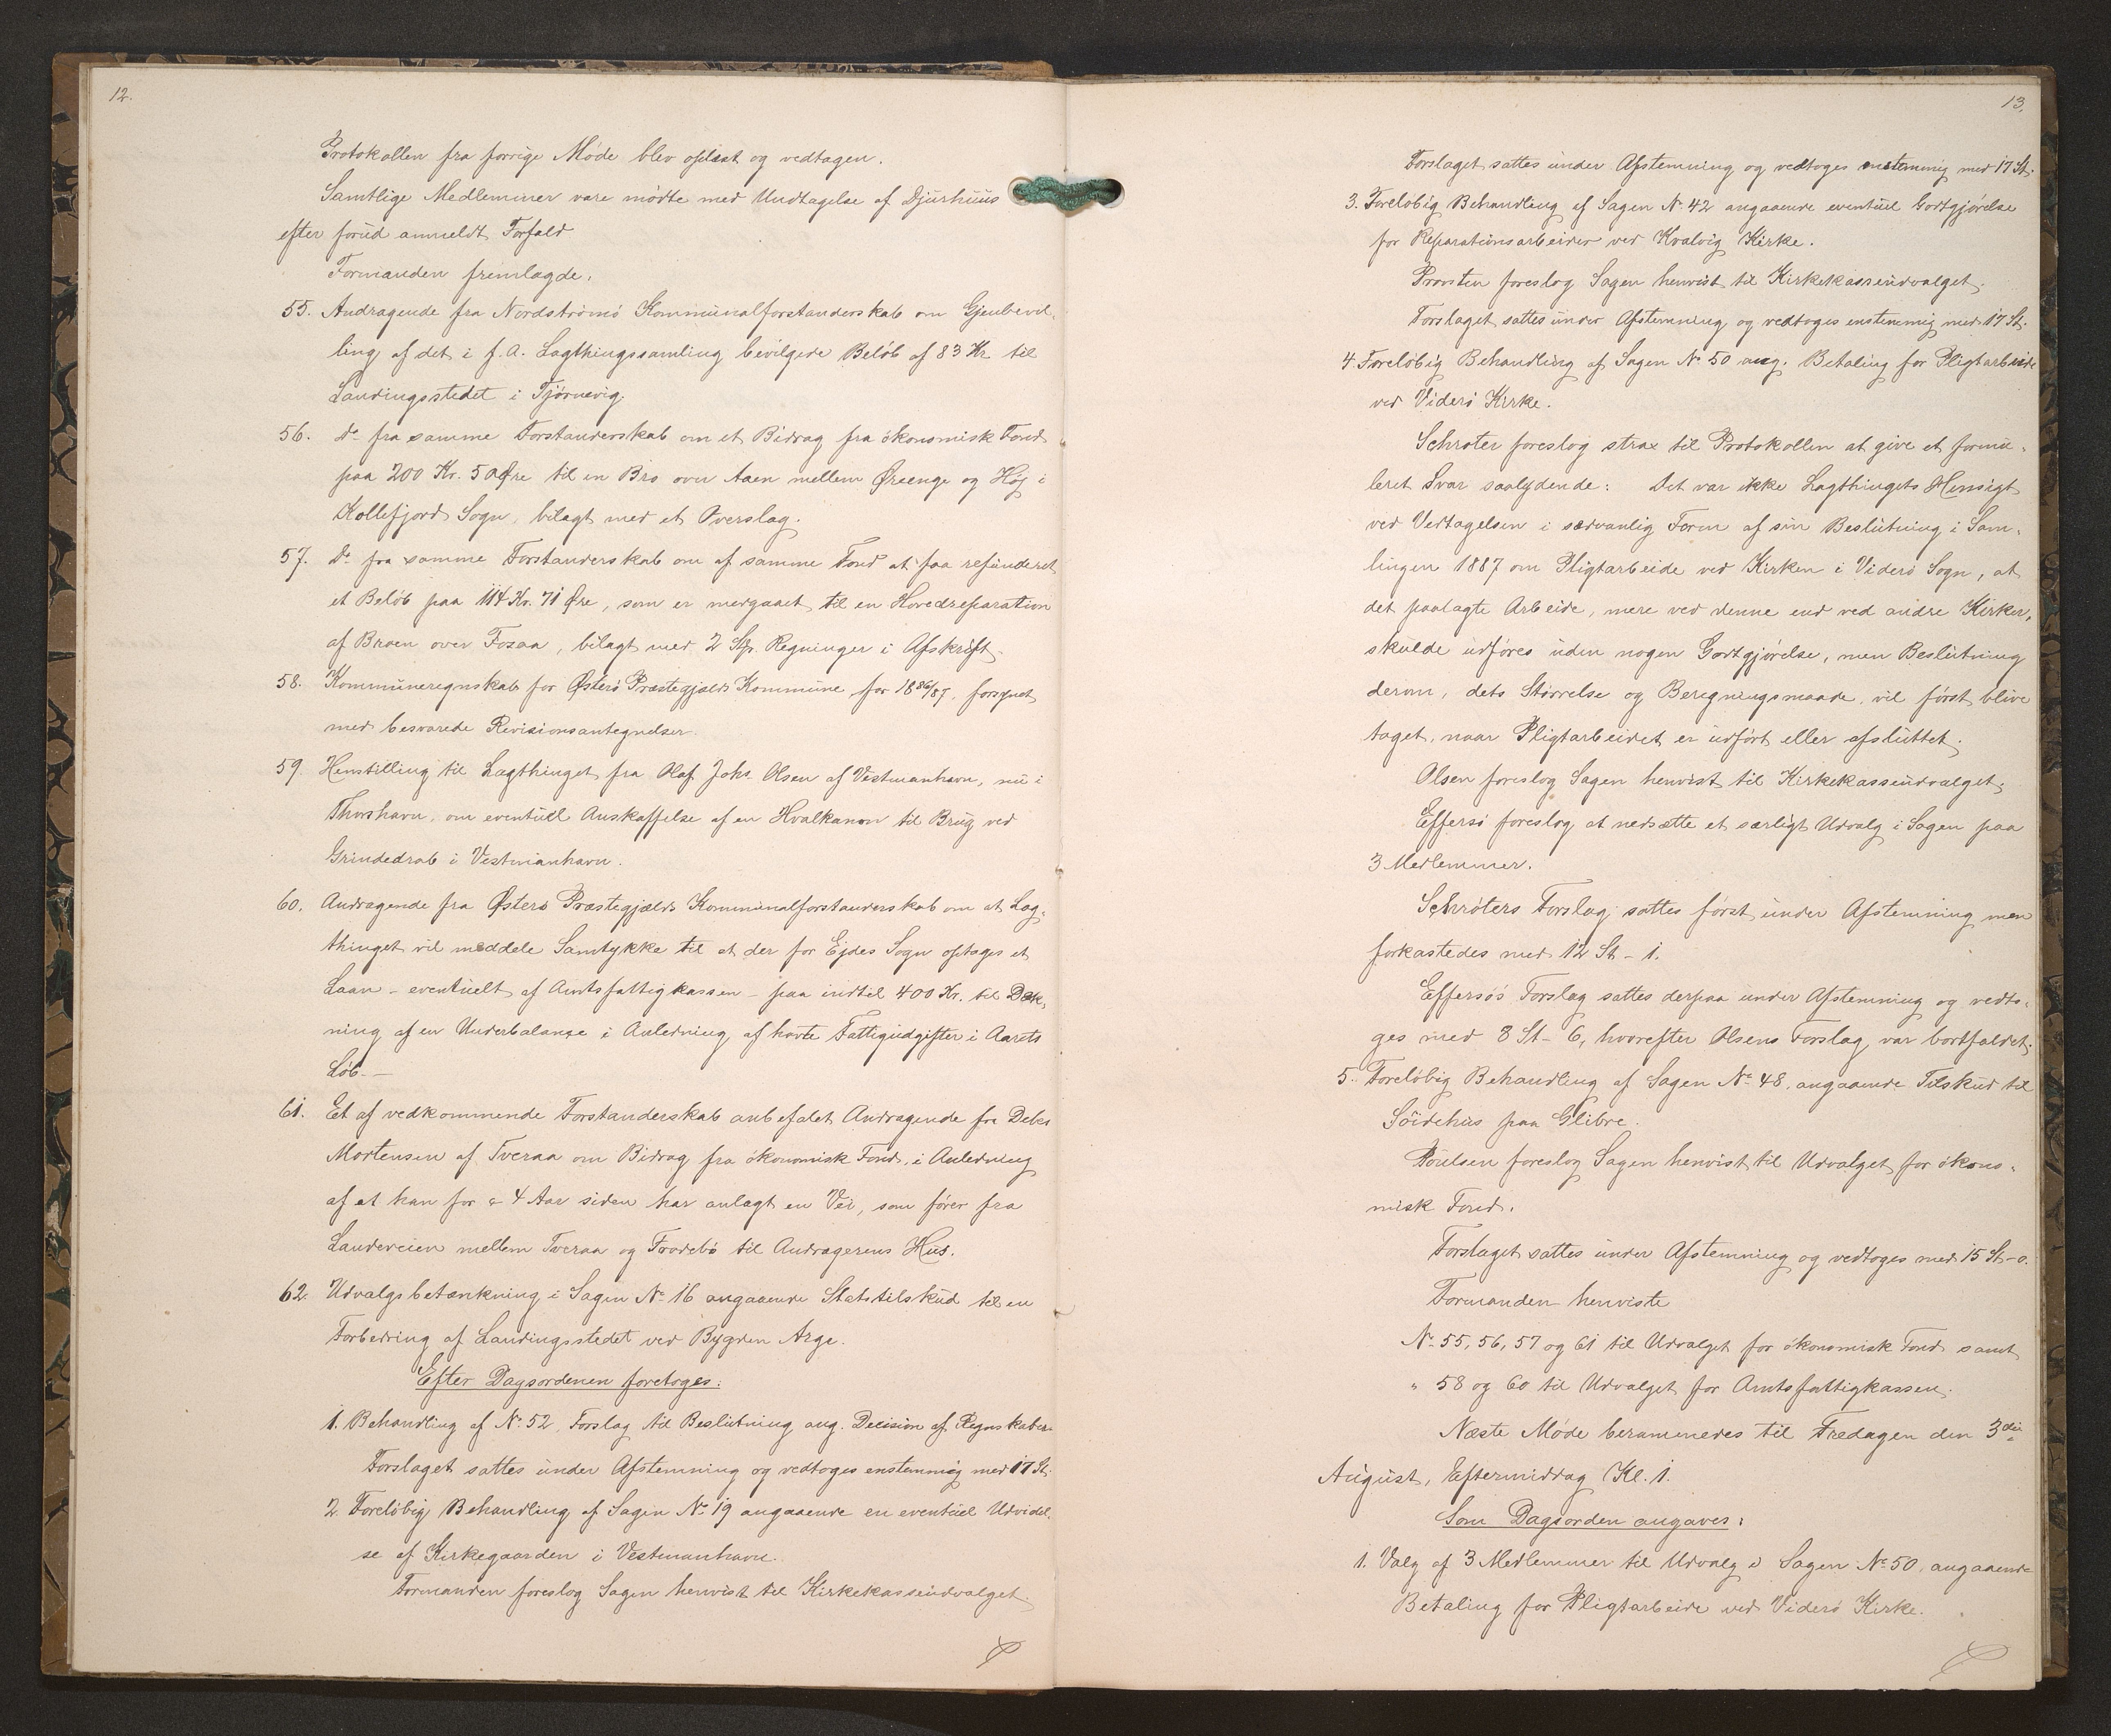 12.
Protokollen fra forrige Møde blev oplæst og vedtagen.
Samtlige Medlemmer vare mødte med Undtagelse af Djurhuus
efter forud anmeldt Forfald
Formanden fremlagde:
55. Andragende fra Nordstrømø Kommunalforstanderskab om Gjenbevil-
ling af det i f. A. Lagthingssamling bevilgede Beløb af 83 Kr. til
Landingsstedet i Tjørnevig.
56. Do fra samme Forstanderskab om et Bidrag fra økonomisk Fond
paa 200 Kr. 50 Øre til en Bro over Aaen mellem Øreenge og Høj i
Kollefjord Sogn, bilagt med et Overslag.
57. Do fra samme Forstanderskab om af samme Fond at faa refunderet
et Beløb paa 114 Kr. 71 Øre, som er medgaaet til en Hovedreparation
af Broen over Fosaa, bilagt med 2 Stk. Regninger i Afskrift.
58. Kommuneregnskab for Østerø Præstegjælds Kommune for 1886/87, forsynet
med besvarede Revisionsantegnelser.
59. Henstilling til Lagthinget fra Olaf Johs Olsen af Vestmanhavn, nu i
Thorshavn, om eventuell Anskaffelse af en Hvalkanon til Brug ved
Grindedrab i Vestmanhavn.
60. Andragende fra Østerø Præstegjælds Kommunalforstanderskab om at Lag-
thinget vil meddele Samtykke til at der for Ejdes Sogn optages et
Laan – eventuelt af Amtsfattigkassen – paa indtil 400 Kr. til Dæk-
ning af en Underbalance i Anledning af havte Fattigudgifter i Aarets
Løb. –
61. Et af vedkommende Forstanderskab anbefalet Andragende fra Debes
Mortensen af Tveraa om Bidrag fra økonomisk Fond, i Anledning
af at han for c 4 Aar siden har anlagt en Vei, som fører fra
Landeveien mellem Tveraa og Frodebø til Andragerens Hus.
62. Udvalgsbetænkning i Sagen No 16 angaaende Statstilskud til en
Forbedring af Landingsstedet ved Bygden Arge.
Efter Dagsordenen foretoges:
1. Behandling af No 52, Forslag til Beslutning ang. Decision af Regnskaber.
Forslaget sattes under Afstemning og vedtoges enstemmig med 17 St.
2. Foreløbig Behandling af Sagen No 19 angaaende en eventuel Udvidel-
se af Kirkegaarden i Vestmanhavn.
Formanden foreslog Sagen henvist til Kirkekasseudvalget.
13.
Forslaget sattes under Afstemning og vedtoges enstemmig med 17 St.
3. Foreløbig Behandling af Sagen No 42 angaaende eventuel Godtgjørelse
for Reparationsarbeider ved Kvalvig Kirke.
Provsten foreslog Sagen henvist til Kirkekasseudvalget.
Forslaget sattes under Afstemning og vedtoges enstemmig med 17 St.
4. Foreløbig Behandling af Sagen No 50 ang. Betaling for Pligtarbeide
ved Viderø Kirke.
Schrøter foreslog strax til Protokollen at give et formu-
leret Svar saalydende: Det var ikke Lagthingets Hensigt
ved Vedtagelsen i sædvanlig Form af sin Beslutning i Sam-
lingen 1887 om Pligtarbeide ved Kirken i Viderø Sogn, at
det paalagte Arbeide, mere ved denne end ved andre Kirker,
skulde udføres uden nogen Godtgjørelse, men Beslutning
derom, dets Størrelse og Beregningsmaade, vil først blive
taget, naar Pligtarbeidet er udført eller afsluttet.
Olsen foreslog Sagen henvist til Kirkekasseudvalget.
Effersø foreslog at nedsætte et særligt Udvalg i Sagen paa
3 Medlemmer.
Schrøters Forslag sattes først under Afstemning men
forkastedes med 12 St – 1.
Effersøs Forslag sattes derpaa under Afstemning og vedto-
ges med 8 St – 6, hvorefter Olsens Forslag var bortfaldet.
5. Foreløbig Behandling af Sagen No 48, angaaende Tilskud til
Søidehus paa Glibre.
Poulsen foreslog Sagen henvist til Udvalget for økono-
misk Fond.
Forslaget sattes under Afstemning og vedtoges med 15 St – 0.
Formanden henviste
No 55, 56, 57 og 61 til Udvalget for økonomisk Fond samt
" 58 og 60 til Udvalget for Amtsfattigkassen.
Næste Møde berammedes til Fredagen den 3die
August, Eftermiddag Kl. 1.
Som Dagsorden angaves:
1. Valg af 3 Medlemmer til Udvalg i Sagen No 50, angaaende
Betaling for Pligtarbeide ved Viderø Kirke.